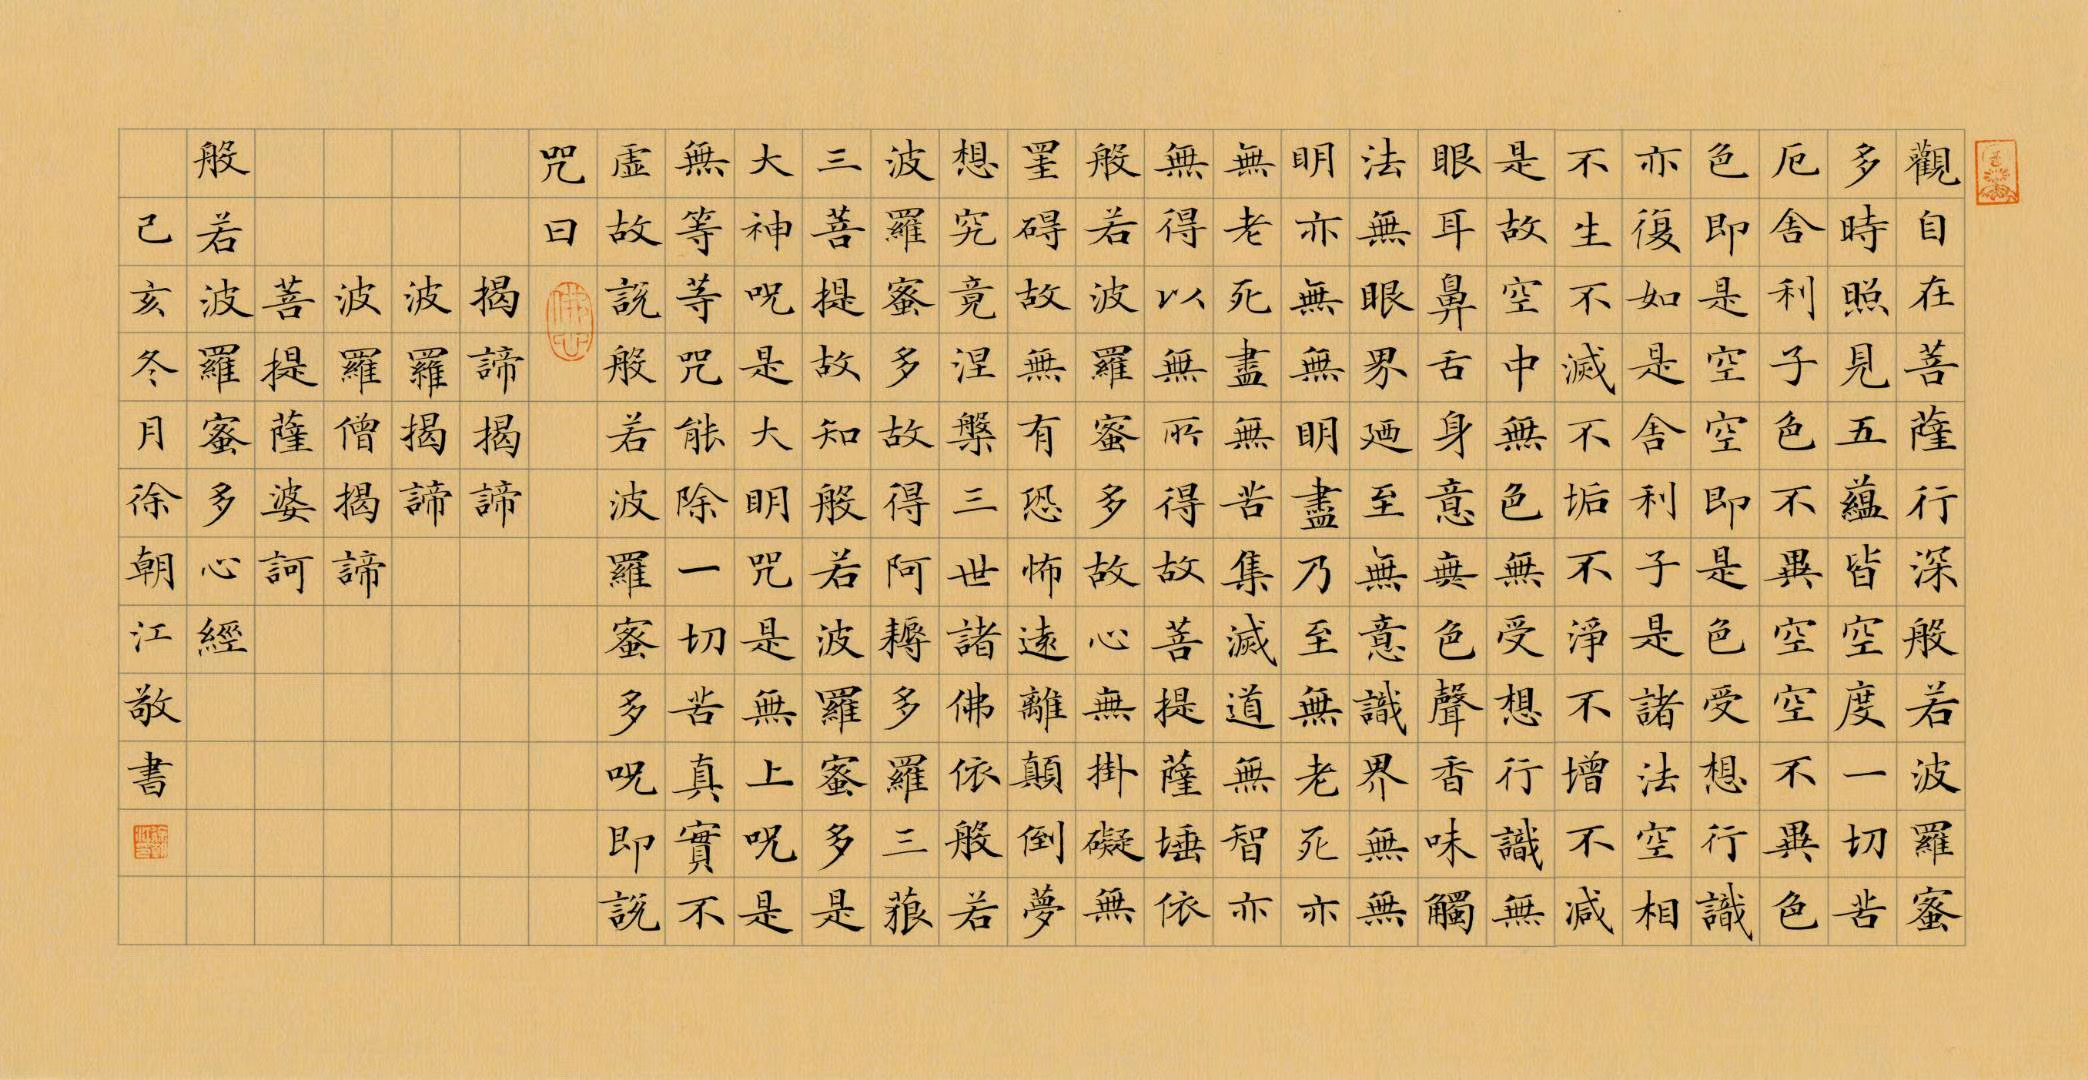 觀自在菩薩行深般若波羅蜜
多時照見五蘊皆空度一切苦
厄舍利子色不異空空不異色
色即是空空即是色受想行識
亦復如是舍利子是諸法空相
不生不滅不垢不淨不增不減
是故空中無色無受想行識無
眼耳鼻舌身意無色聲香味觸
法無眼界廼至無意識界無無
明亦無無明盡乃至無老死亦
無老死盡無苦集滅道無智亦
無得以無所得故菩提薩埵依
般若波羅蜜多故心無掛礙無
罣碍故無有恐怖遠離顛倒夢
想究竟涅槃三世諸佛依般若
波羅蜜多故得阿耨多羅三藐
三菩提故知般若波羅蜜多是
大神呪是大明咒是無上呪是
無等等咒能除一切苦真實不
虛故說般若波羅蜜多呪即說
咒曰
佛心
揭諦揭諦
波羅揭諦
波羅僧揭諦
菩提薩婆訶
般若波羅蜜多心經
己亥冬月徐朝江敬書